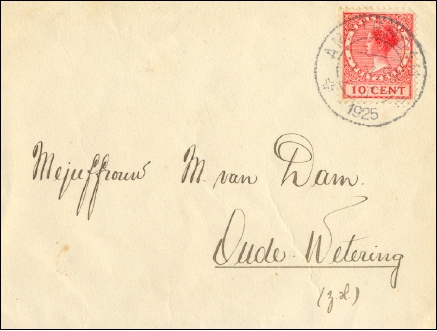 10 CENT
1925
Mejuffrouw M. van Dam.
Oude-Wetering
(z.H.)